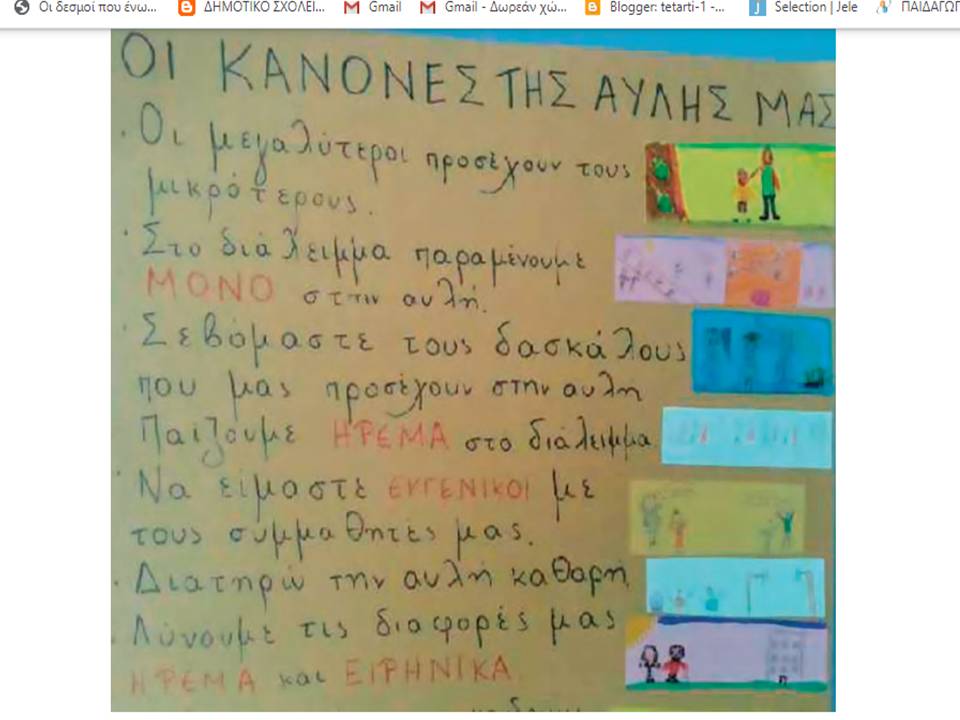 Οι δεσμοί που ένω... ΔΗΜΟΤΙΚΟ ΣΧΟΛΕΙ... Gmail Gmail - Δωρεάν χώ... Blogger: tetarti-1 -... Selection | Jele ΠΑΙΔΑΓΩΓ
ΟΙ ΚΑΝΟΝΕΣ ΤΗΣ ΑΥΛΗΣ ΜΑΣ
· Οι μεγαλύτεροι προσέχουν τους
μικρότερους.
· Στο διάλειμμα παραμένουμε
ΜΟΝΟ στην αυλή.
· Σεβόμαστε τους δασκάλους
που μας προσέχουν στην αυλή
Παίζουμε ΗΡΕΜΑ στο διάλειμμα
· Να είμαστε ΕΥΓΕΝΙΚΟΙ με
τους συμμαθητές μας.
· Διατηρώ την αυλή καθαρή
· Λύνουμε τις διαφορές μας
ΗΡΕΜΑ και ΕΙΡΗΝΙΚΑ